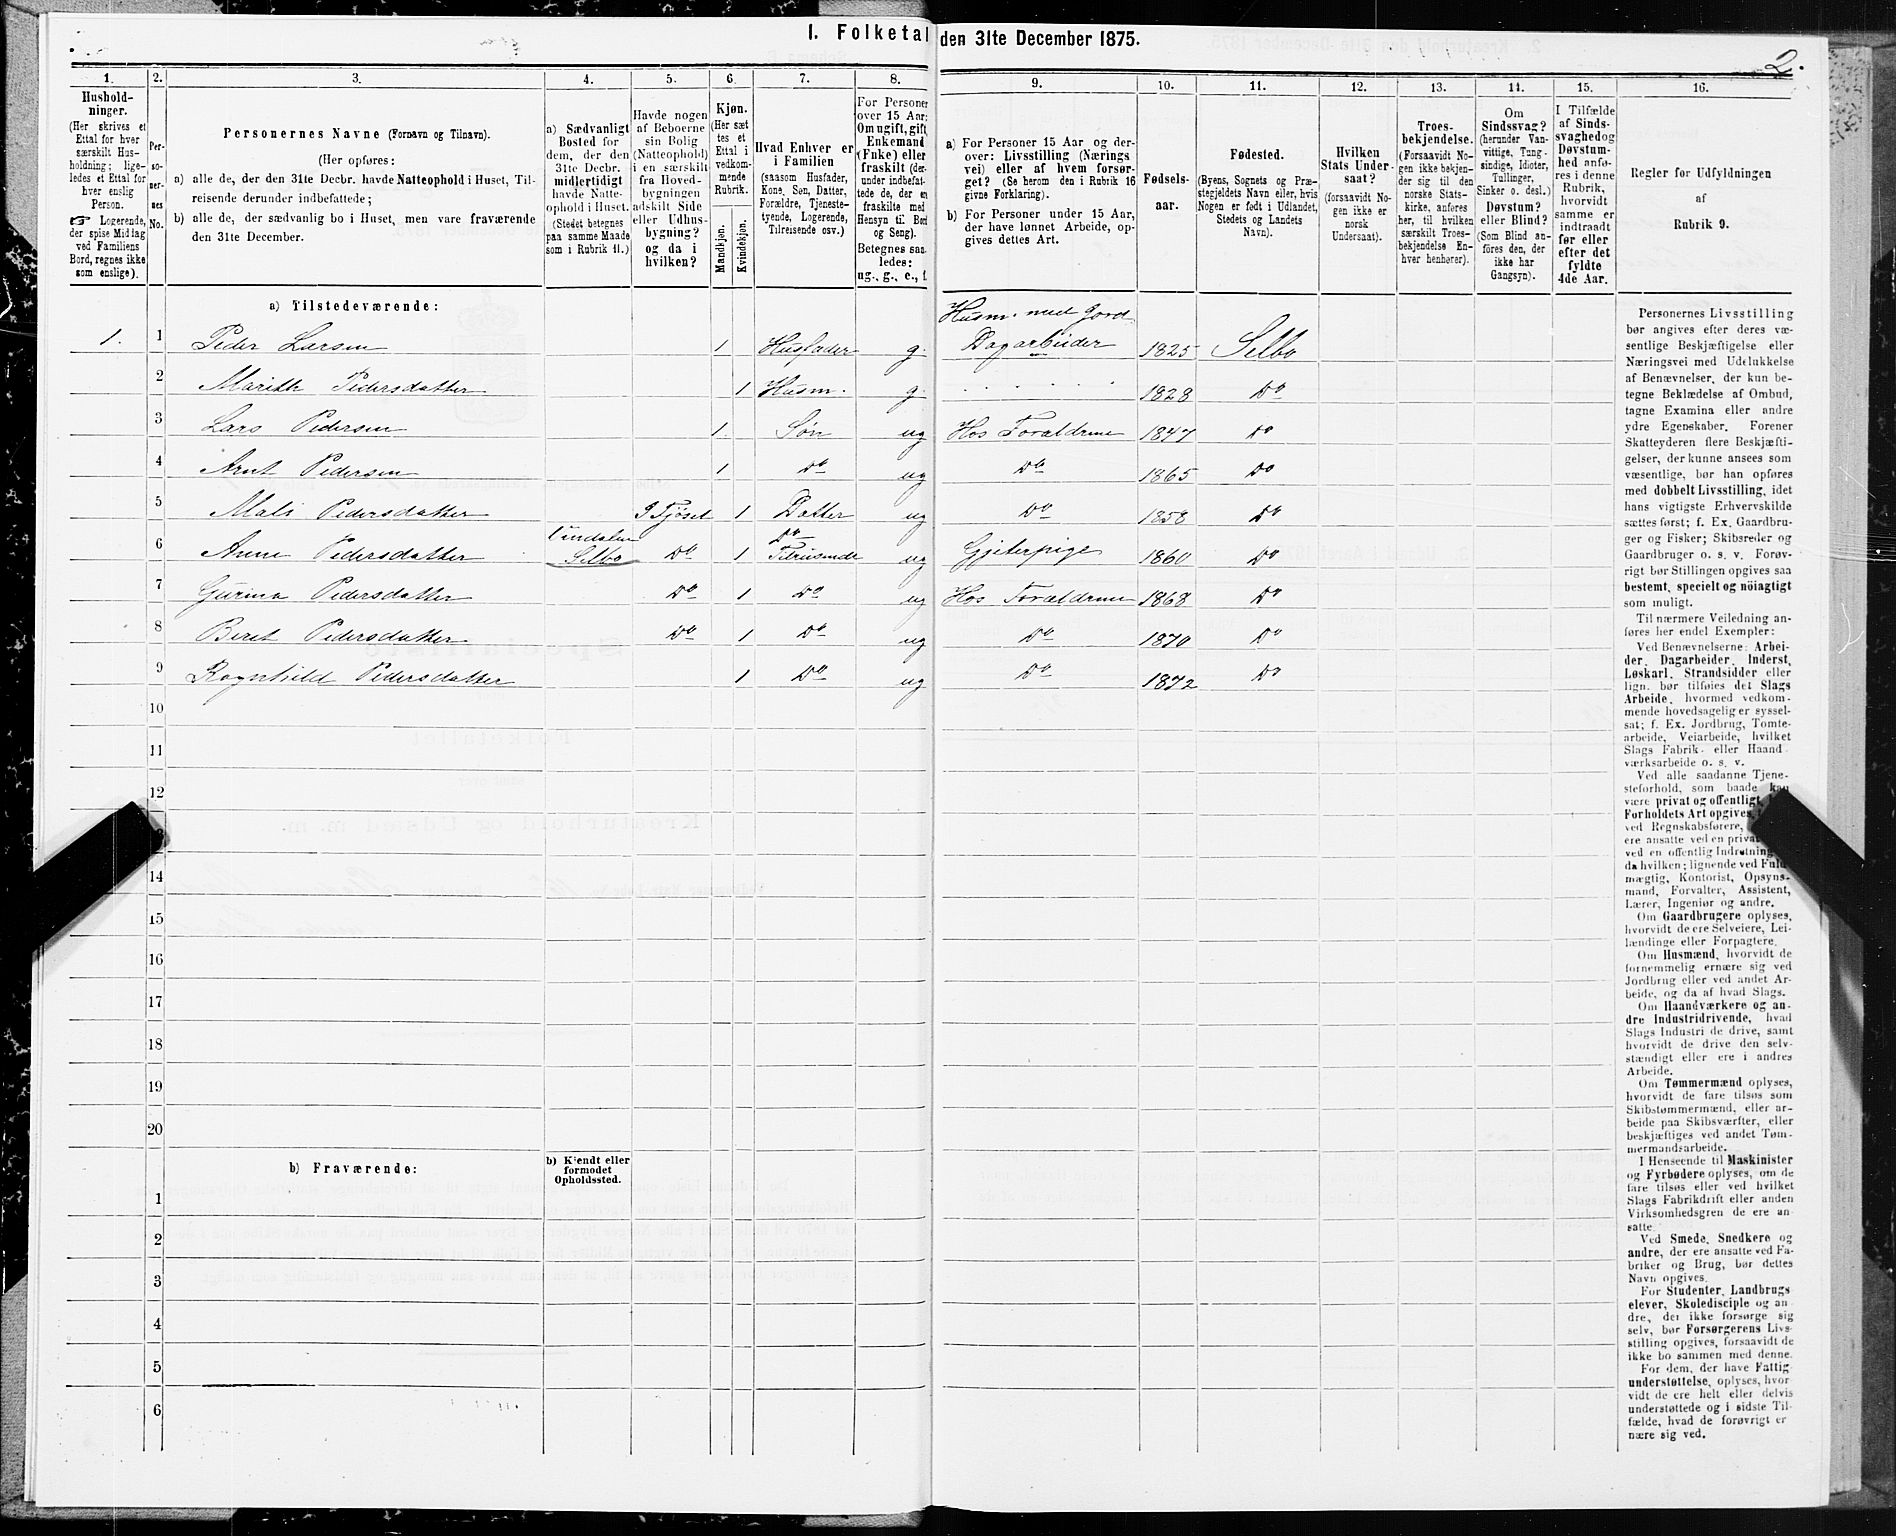 1. Folketal den 31te December 1875.
2.
1. 2. 3. 4. 5. 6. 7. 8. 9. 10. 11. 12. 13. 14. 15. 16.
Hushold-
ninger.
(Her skrives et
Ettal for hver
særskilt Hus-
holdning; lige-
ledes et Ettal for
hver enslig
Person.
☞ Logerende,
der spise Middag
ved Familiens
Bord, regnes ikke
som enslige).
Per-
so-
ner-
nes
No.
Personernes Navne (Fornavn og Tilnavn).
(Her opføres:
a) alle de, der den 31te Decbr. havde Natteophold i Huset, Til-
reisende derunder indbefattede;
b) alle de, der sædvanlig bo i Huset, men vare fraværende
den 31te December.
a) Sædvanligt
Bosted for
dem, der den
31te Decbr.
midlertidigt
havde Natte-
ophold i Huset.
(Stedet betegnes
paa samme Maade
som i Rubrik 11.)
Havde nogen
af Beboerne
sin Bolig
(Natteophold)
i en særskilt
fra Hoved-
bygningen
adskilt Side
eller Udhus-
bygning?
og da i
hvilken?
Kjøn.
(Her sæt
tes et
Ettal i
vedkom-
mende
Rubrik.
Mandkjøn.
Kvindekjøn.
Hvad Enhver er
i Familien
(saasom Husfader,
Kone, Søn, Datter,
Forældre, Tjeneste-
tyende, Logerende,
Tilreisende osv.)
For Personer
over 15 Aar:
Om ugift, gift,
Enkemand
(Enke) eller
fraskilt (der-
under indbefat-
tede de, der ere
fraskilte med
Hensyn til Bord
og Seng).
Betegnes saa-
ledes:
ug., g., e., f.
a) For Personer 15 Aar og der-
over: Livsstilling (Nærings
vei) eller af hvem forsør-
get? (Se herom den i Rubrik 16
givne Forklaring).
b) For Personer under 15 Aar,
der have lønnet Arbeide, op-
gives dettes Art.
Fødsels-
aar.
Fødested.
(Byens, Sognets og Præ-
stegjeldets Navn eller, hvis
Nogen er født i Udlandet,
Stedets og Landets
Navn).
Hvilken
Stats Under-
saat?
(forsaavidt No-
gen ikke er
norsk
Undersaat).
Troes-
bekjendelse.
(Forsaavidt No-
gen ikke bekjen-
der sig til den
norske Stats-
kirke, anføres
her, til hvilken
særskilt Troes-
bekjendelse En-
hver henhører).
Om
Sindssvag?
(herunder Van-
vittige, Tung-
sindige, Idioter,
Tullinger,
Sinker o. desl.)
Døvstum?
eller Blind?
(Som Blind an-
føres den, der
ikke har
Gangsyn).
I Tilfælde
af Sinds-
svaghed og
Døvstum-
hed anfø-
res i denne
Rubrik,
hvorvidt
samme er
indtraadt
før eller
efter det
fyldte
4de Aar.
Regler for Udfyldningen
af
Rubrik 9.
a) Tilstedeværende:
Husm. med Jord
1. 1 Peder Larsen 1 Husfader g. Dagarbeider 1825 Selbo
2 Marith Pedersdatter 1 Husm. g. 1828 Do
3 Lars Pedersen 1. Søn ug Hos Forældrene 1847 Do
4 Arnt Pedersen 1 Do ug Do 1865 Do
5 Mali Pedersdatter I Fjöset 1 Datter ug Do 1858 Do
Do
6 Anne Pedersdatter Selbo Do 1 Tilreisende ug Gjeterpige 1860 Do
7 Gurina Pedersdatter Do 1 Do ug Hos Forældrene 1868 Do
8 Beret Pedersdatter Do 1 Do ug Do 1870 Do
9 Ragnhild Pedersdatter 1 Do ug Do 1872 Do
10
11
12
14
15
16
17
18
19
20
b) Fraværende:
b) Kjendt eller
formodet
Opholdssted.
1
2
3
4
5
6
Personernes Livsstilling
bør angives efter deres væ-
sentlige Beskjæftigelse eller
Næringsvei med Udelukkelse
af Benævnelser, der kun be-
tegne Beklædelse af Ombud,
tagne Examina eller andre
ydre Egenskaber. Forener
Skatteyderen flere Beskjæfti-
gelser, der kunne ansees som
væsentlige, bør han opføres
med dobbelt Livsstilling, idet
hans vigtigste Erhvervskilde
sættes først; f. Ex. Gaardbru-
ger og Fisker; Skibsreder og
Gaardbruger o. s. v. Forøv-
rigt bør Stillingen opgives saa
bestemt, specielt og nøiagtigt
som muligt.
Til nærmere Veiledning an-
føres her endel Exempler:
Ved Benævnelserne: Arbei-
der, Dagarbeider, Inderst,
Løskarl, Strandsidder eller
lign. bør tilføies det Slags
Arbeide, hvormed vedkom-
mende hovedsagelig er syssel-
sat; f. Ex. Jordbrug, Tomte-
arbeide, Veiarbeide, hvilket
Slags Fabrik- eller Haand-
værksarbeide o. s. v.
Ved alle saadanne Tjene-
steforhold, som baade kan
være privat og offentligt,
Forholdets Art opgives,
ved Regnskabsførere,
ere ansatte ved en privat
ved en offentlig Indretning
da hvilken; lignende ved Fuld-
mægtig, Kontorist, Opsyns-
mand, Forvalter, Assistent,
Lærer, Ingeniør og andre.
Om Gaardbrugere oplyses,
hvorvidt de ere Selveiere, Lei-
lændinge eller Forpagtere.
Om Husmænd, hvorvidt de
fornemmelig ernære sig ved
Jordbrug eller ved andet Ar-
beide, og da af hvad Slags.
Om Haandværkere og an-
dre Industridrivende, hvad
Slags Industri de drive, samt
hvorvidt de drive den selv-
stændigt eller ere i andres
Arbeide.
Om Tømmermænd oplyses,
hvorvidt de fare tilsøs som
Skibstømmermænd, eller ar-
beide paa Skibsværfter, eller
beskjæftiges ved andet Tøm-
mermandsarbeide.
I Henseende til Maskinister
og Fyrbødere oplyses, om de
fare tilsøs eller ved hvilket
Slags Fabrikdrift eller anden
Virksomhedsgren de ere an-
satte.
Ved Smede, Snedkere og
andre, der ere ansatte ved Fa-
briker og Brug, bør dettes
Navn opgives.
For Studenter, Landbrugs-
elever, Skoledisciple og an-
dre, der ikke forsørge sig
selv, bør Forsørgerens Livs-
stilling opgives, forsaavidt de
ikke bo sammen med denne.
For dem, der have Fattig-
understøttelse, oplyses, hvor-
vidt de ere helt eller delvis
understøttede og i sidste Til-
fælde, hvad de forøvrigt er-
nære sig ved.